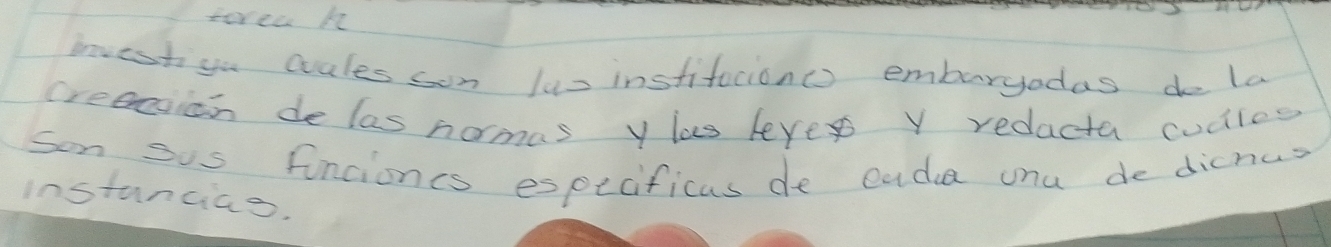 tarea h
investiga cuales son las instituciones embargadas de la
creación de las normas y las leyes y redacta cuáles
son sus funciones especificas de cada una de dichas
instancias.